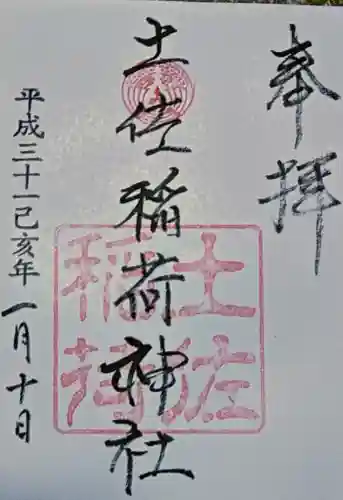 奉拝
土佐稲荷神社
平成三十一己亥年
一月十日
土佐
稲荷